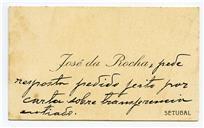 José da Rocha, pede
resposta pedido feito por
carta sobre transferencia
SETUBAL